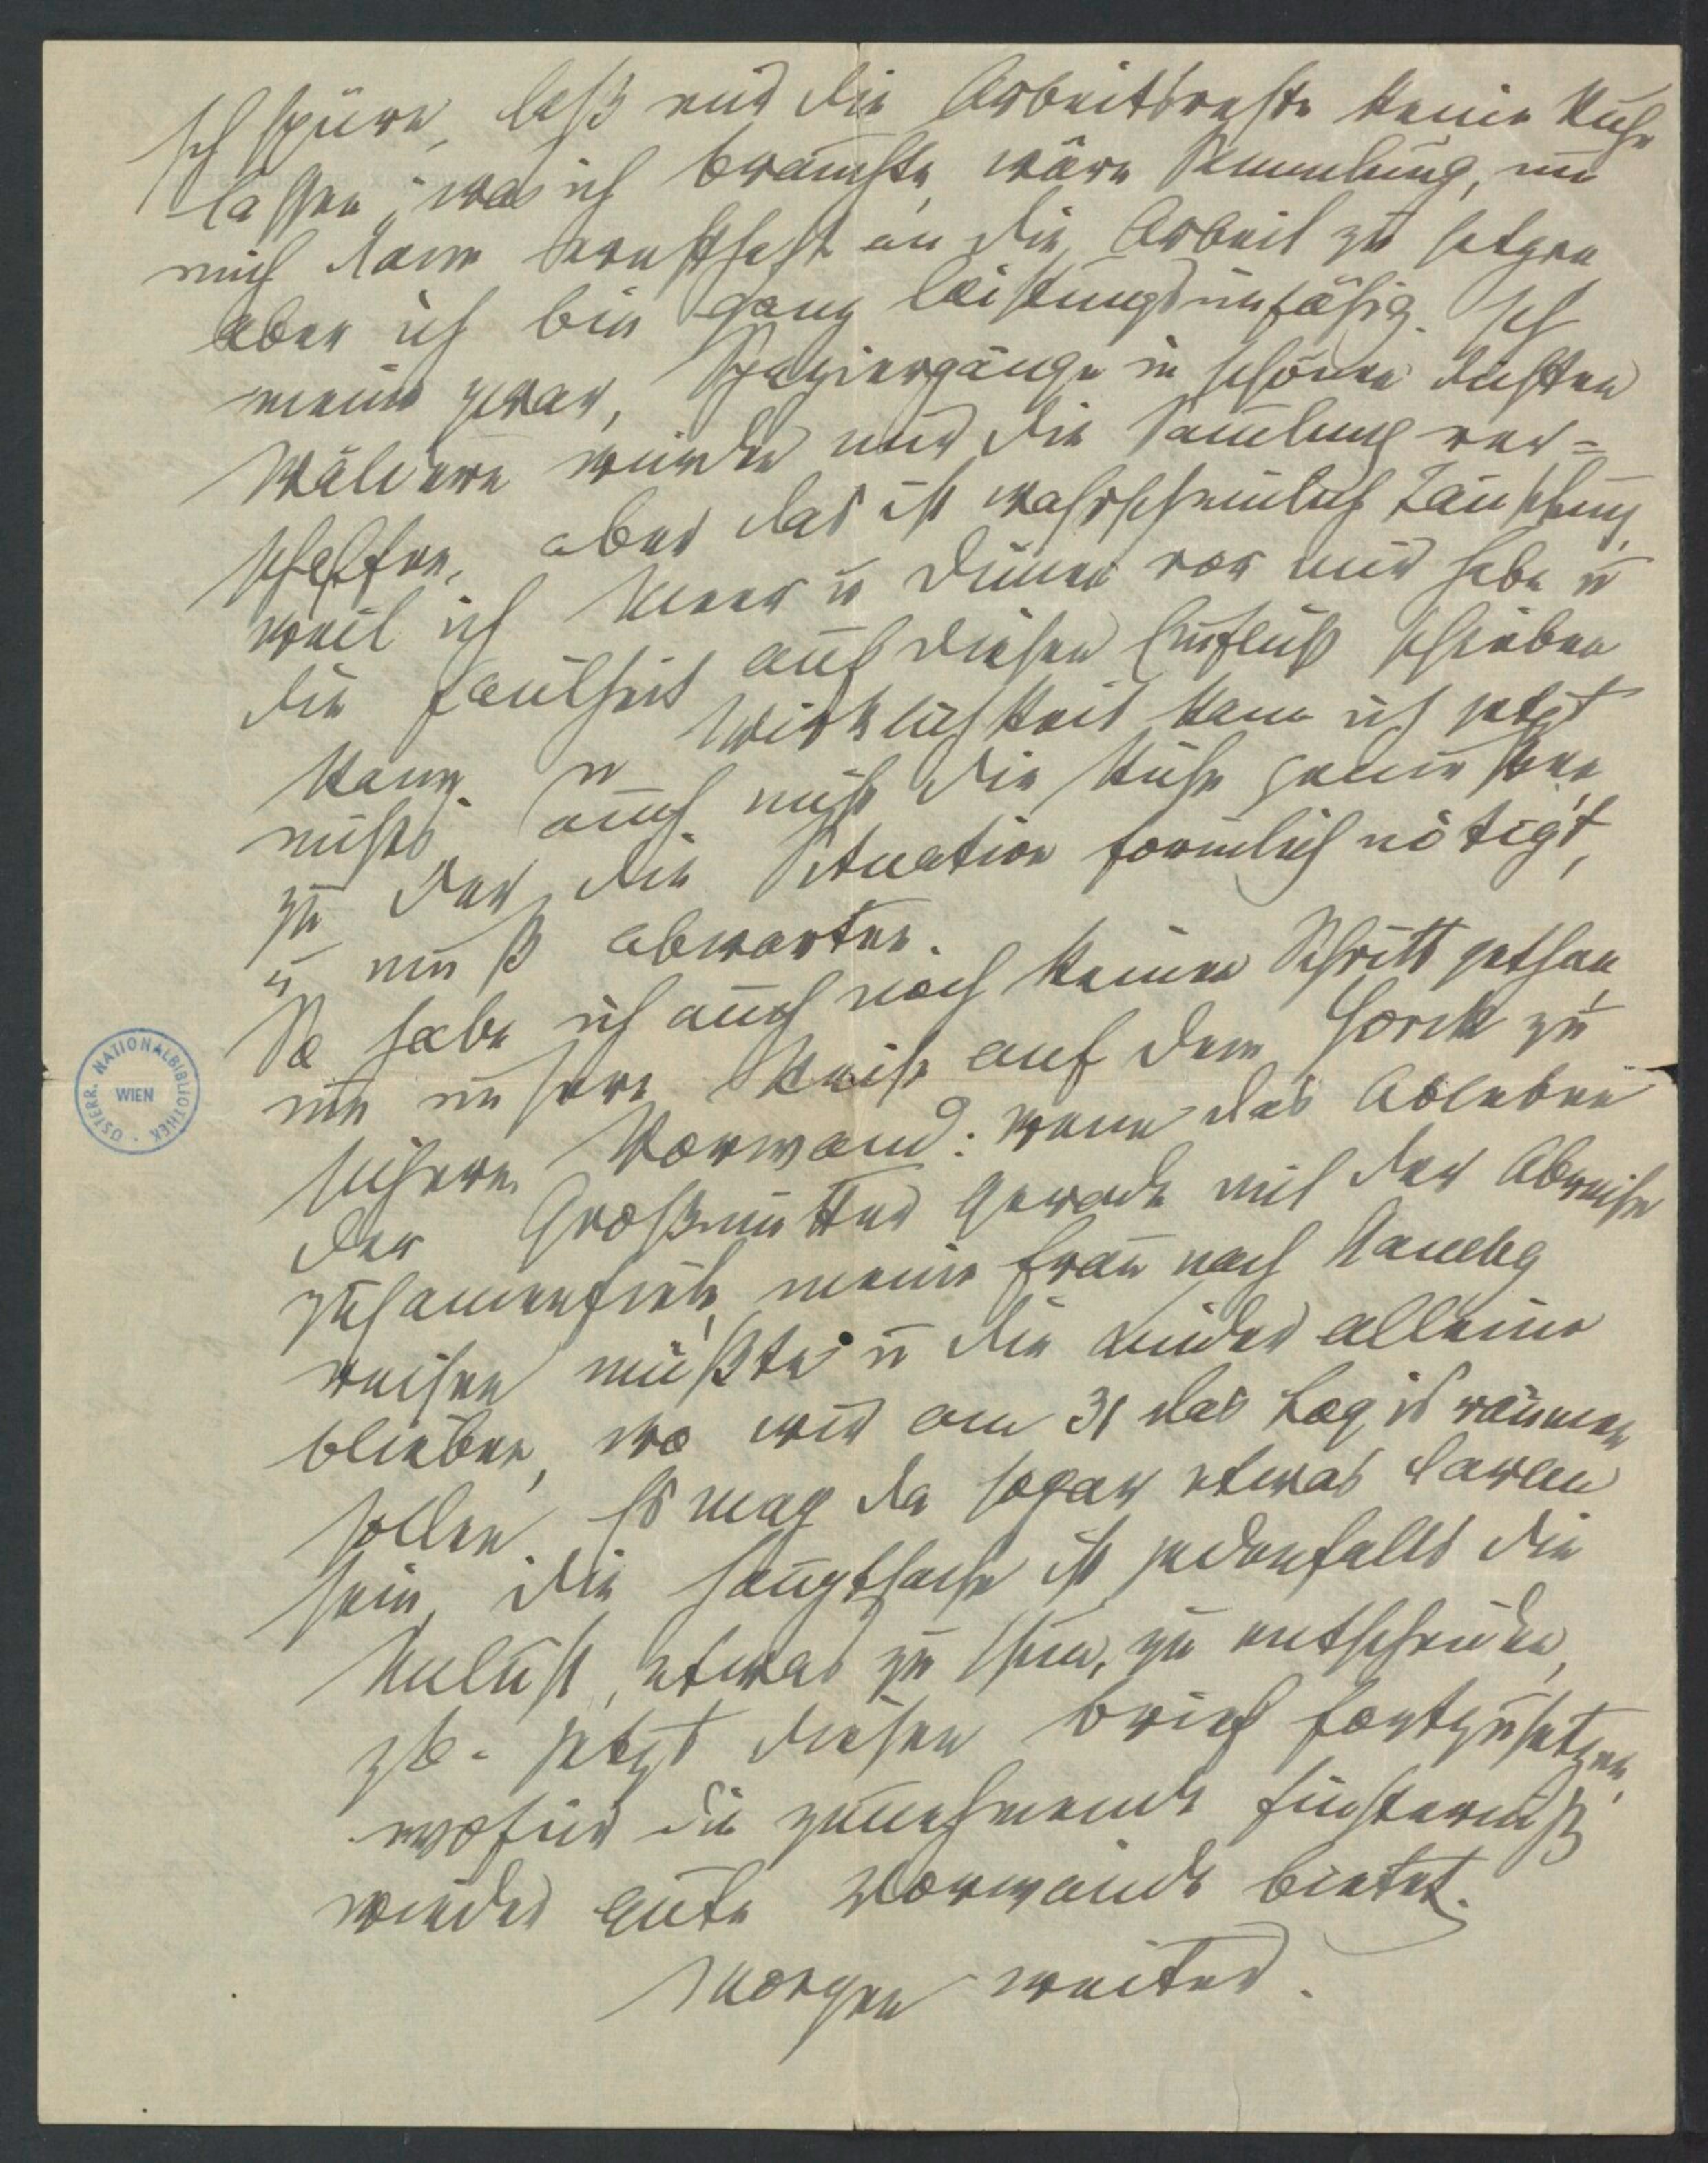 Ich spüre, daß mir die Arbeitsreste keine Ruhe
lassen; was ich brauchte, wäre Sammlung, um
mich dann krafthaft an die Arbeit zu setzen
aber ich bin ganz leistungsunfähig. Ich
meine zwar, Spaziergänge in schönen dichten
Wäldern würden mir die Samlung ver=
schaffen, aber das ist wahrscheinlich Täuschung,
weil ich Meer u Dünen vor mir habe u
die Faulheit auf diesen Einfluß schieben
kann. In Wirklichkeit kann ich jetzt
nichts, auch nicht die Ruhe genießen,
zu der die Situation förmlich nötigt,
u muß abwarten.
So habe ich auch noch keinen Schritt gethan,
um unsere Reise auf dem Horck zu
sichern. Vorwand: wenn das Ableben
der Großmutter gerade mit der Abreise
zusamenfiele, meine Frau nach Hambg
reisen müßte u die Kinder alleine
blieben, wo wir am 31 das Logis räumen
sollen. Es mag da sogar etwas daran
sein, die Hauptsache ist jedenfalls die
Unlust, etwas zu thun, zu entscheiden,
zB. jetzt diesen Brief fortzusetzen,
wofür die zunehmende Finsterniß
wieder gute Vorwände bietet.
Morgen weiter.
ÖSTERR. NATIONALBIBLIOTHEK
WIEN